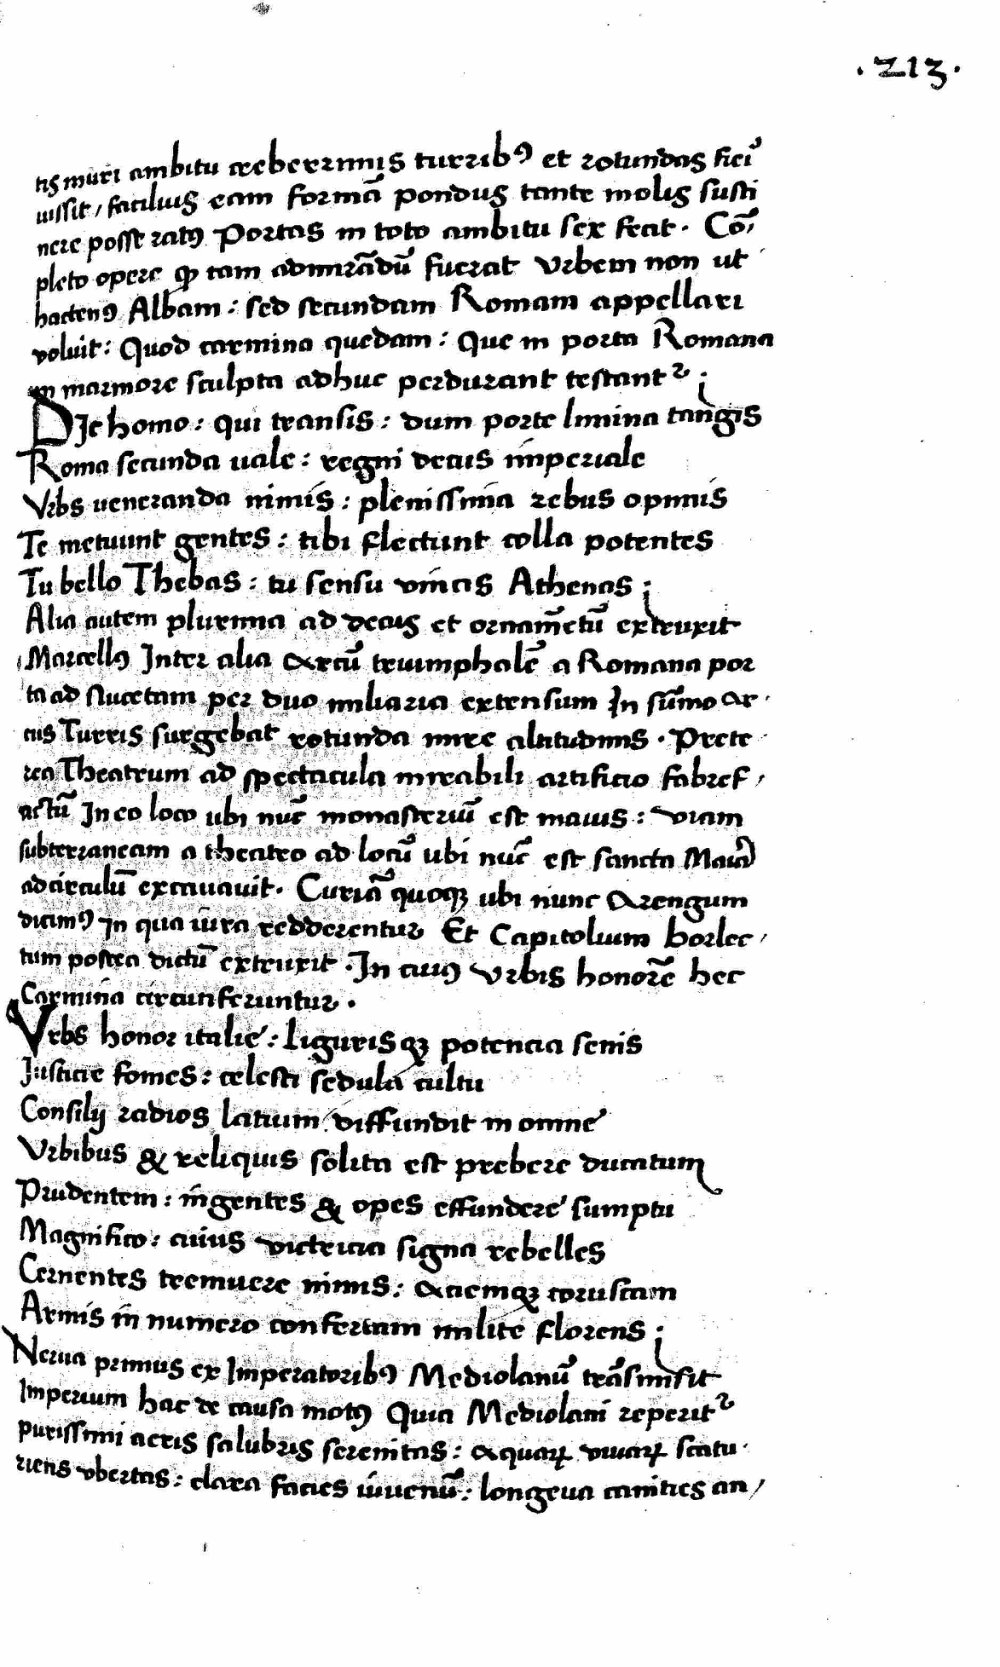 .213.
tis muri ambitu creberrimis turribꝰ et rotundas fieri
iussit / facilius eam formā pondus tante molis susti
nere posse ratꝰ Portas in toto ambitu sex fecit. Cō/
pleto opere qd tam admirādū fuerat Vrbem non ut
hactenꝰ Albam : sed secundam Romam appellari
voluit : Quod carmina quedam : Que in porta Romana
in marmore sculpta adhuc perdurant testantᷣ ;
Dic homo : qui transis : dum porte limina tangis
Roma secunda uale : regni decus imperiale
Vrbs veneranda nimis : plenissima rebus opimis
Te metuunt gentes : tibi flectunt colla potentes
Tu bello Thebas : tu sensu vincis Athenas ;
Alia autem plurima ad decus et ornamētū extruxit
Marcellꝰ Inter alia Arcū triumphalē a Romana por
ta ad Nucetam per duo miliaria extensum In sūmo Ar
cus Turris surgebat rotunda mire altitudinis. Prete
rea Theatrum ad spectacula mirabili artificio fabref /
actū In eo loco ubi nūc monasteriū est maius : viam
subterraneam a theatro ad locū ubi nūc est sancta Maria
ad circulū excavavit. Curiā quoqꝫ ubi nunc Arengum
dicimꝰ In qua iura redderentur Et Capitolium borlec /
tum postea dictū extruxit. In cuiꝰ Vrbis honorē hec
Carmina circunferuntur.
Vrbs honor italie : liguris qꝫ potencia senis
Iusticie fomes : celesti sedula cultu
Consilij radios latium diffundit in omne
Vrbibus & reliquis solita est prebere ducatum
Prudentem : ingentes & opes effundere sumptu
Magnifico : cuius victricia signa rebelles
Cernentes tremuere nimis : Aciemqꝫ coruscam
Armis in numero confertam milite florens ;
Nerua primus ex Imperatoribꝰ Mediolanū trāsmisit
Imperium hac de causa motꝰ Quia Mediolani reperitᷣ
purissimi aeris salubris serenitas : aquaꝝ vivaꝝ scatu.
riens vbertas : clara facies iuvenū : longeva canities an /